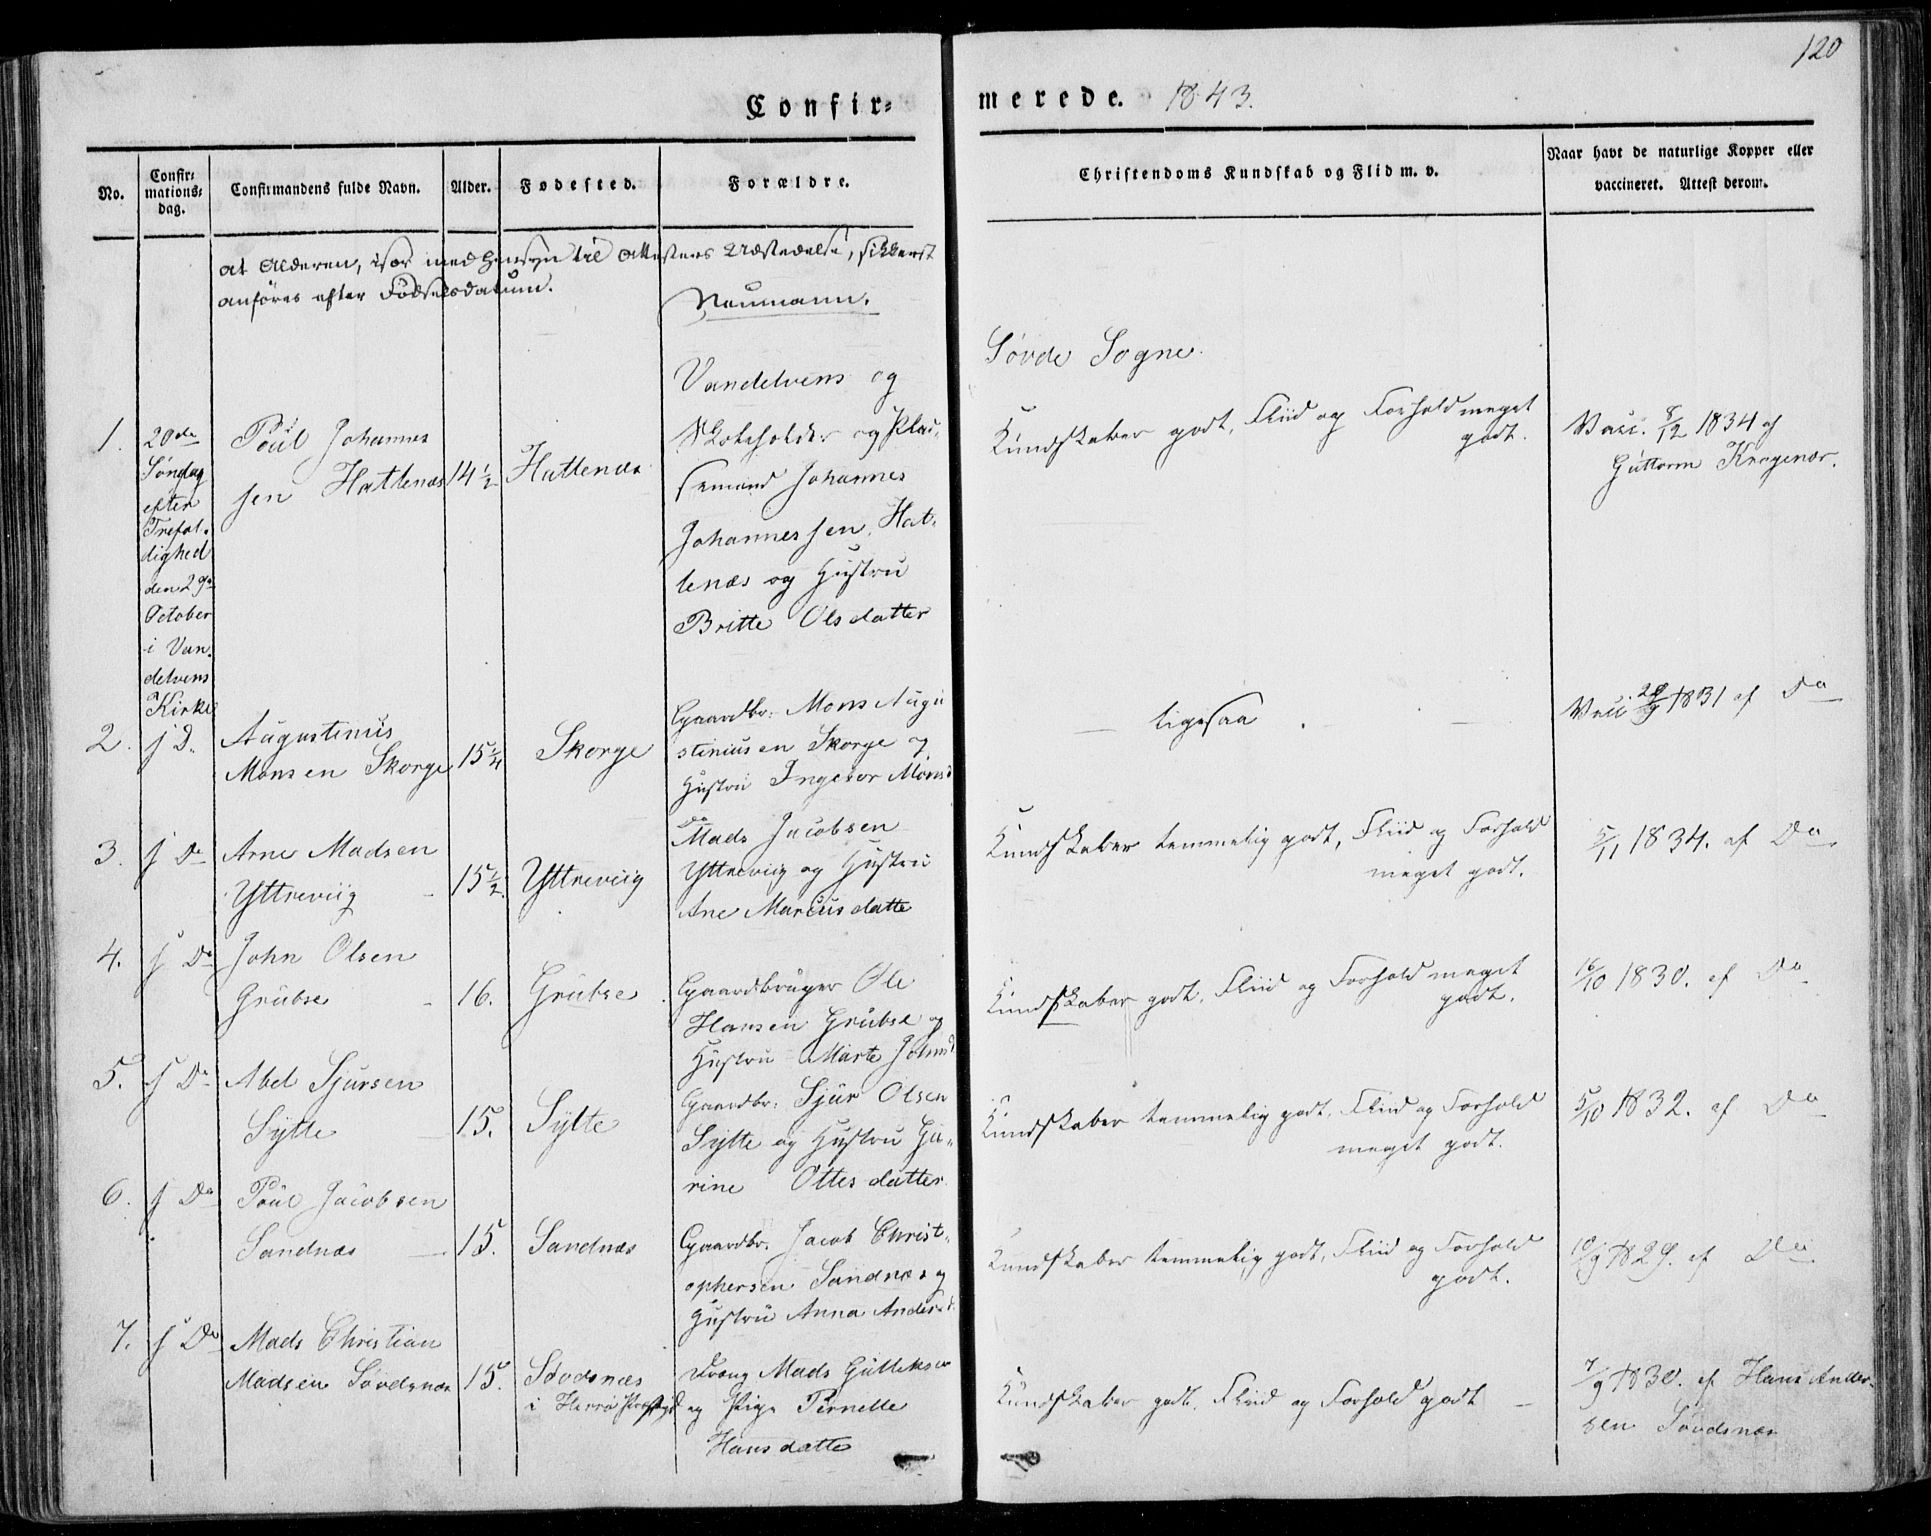 120
Confir-
merede. 1843.
No.
Confir-
mations-
dag.
Confirmandens fulde Navn.
Alder.
Fødested.
Forældre.
Christendoms Kundskab og Flid m. v.
Naar havt de naturlige Kopper eller
vaccineret. Attest derom.
at Alderen, især med Hensyn til Attesters Udstedelse, sikkerst
anføres efter Fødselsdatum.
Neumann.
Vandelvens og
Søvde Sogne.
1.
20de
Søndag
efter
Trefol-
dighed
den 29de
October
i Van-
delvens
Kirke
Poul Johannes
sen Hatlenæs
14 1/2
Hatlenæs
Skoleholder og Plad-
semand Johannes
Johannessen, Hat-
lenæs og Hustru
Britte Olsdatter
Kundskaber godt, Fliid og Forhold meget
godt.
Vacc. 8/12 1834 af
Guttorm Kragenæs.
2.
f D.
Augustinus
Monsen Skorge
15 1/4
Skorge
Gaardbr. Mons Augu
stiniusen Skorge og
Hustru Ingebor Monsd
ligesaa
Vacc 1831 af Do
3.
f Do
Arne Madsen
Yttreviig
15 1/2.
Yttreviig
Do
Mads Jacobsen
Yttreviig og Hustru
Ane Marcusdatte
Kundskaber temmelig godt, Fliid og Forhold
meget godt.
5/11 1834. af Do
4.
f Do
John Olsen
Grubse
16.
Grubse
Gaardbruger Ole
Hansen Grubse og
Hustru Marte Johnsd
Kundskaber godt, Fliid og Forhold meget
godt.
16/10 1830. af Do
5.
f Do
Abel Sjursen
Sylte
15.
Sylte
Gaardbr: Sjur Olsen
Sylte og Hustru Gu-
rine Ottesdatter
Kundskaber temmelig godt, Fliid og Forhold
meget godt.
5/10 1832. af Do
6.
f Do
Poul Jacobsen
Sandnæs
15.
Sandnæs
Gaardbr. Jacob Christ-
ophersen Sandnæs og
Hustru Anna Andersd.
Kundskaber temmelig godt, Fliid og Forhold
godt.
10/9 1829. af Do
7.
f Do
Mads Christian
Madsen Søvdsnæs
15.
Søvdsnæs
i Herrø Præstegjd
Dreng Mads Gulleksen
og Pige Pernelle
Hansdatte
Kundskaber godt, Fliid og Forhold godt
7/9 1830. af Hans Ander-
sen Søvdsnæs